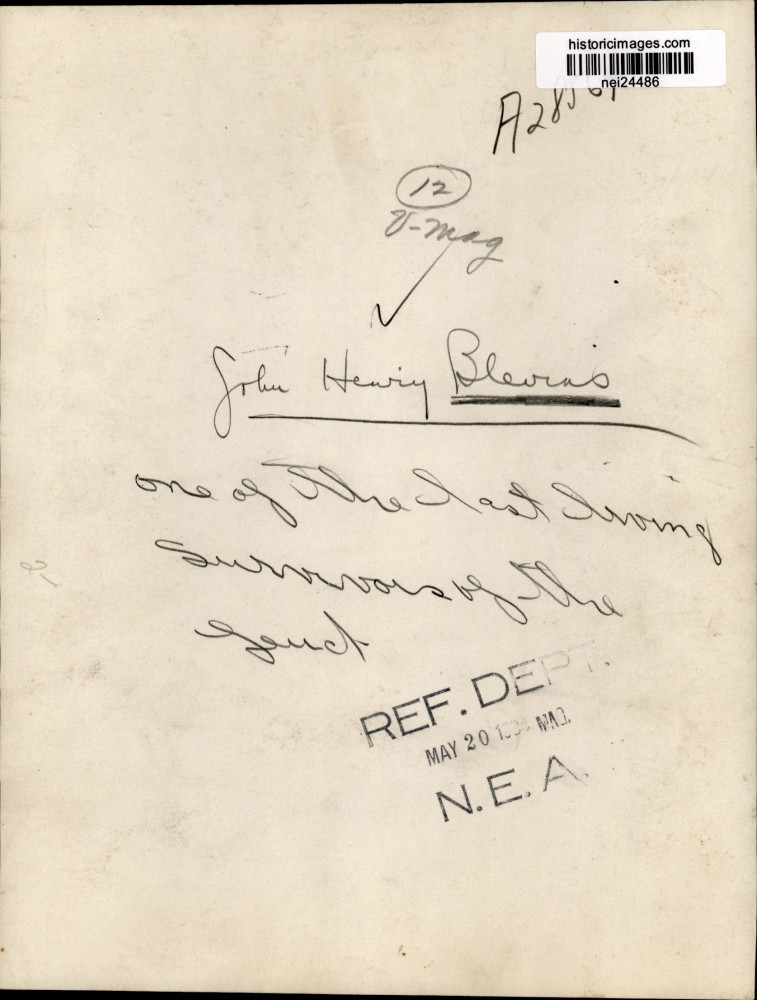 historicimages.com
nei24486
12
V-Mag
John Henry Blevins
one of the last living
survivors of the
feud
REF. DEPT.
MAY 20 MAG.
N.E.A.